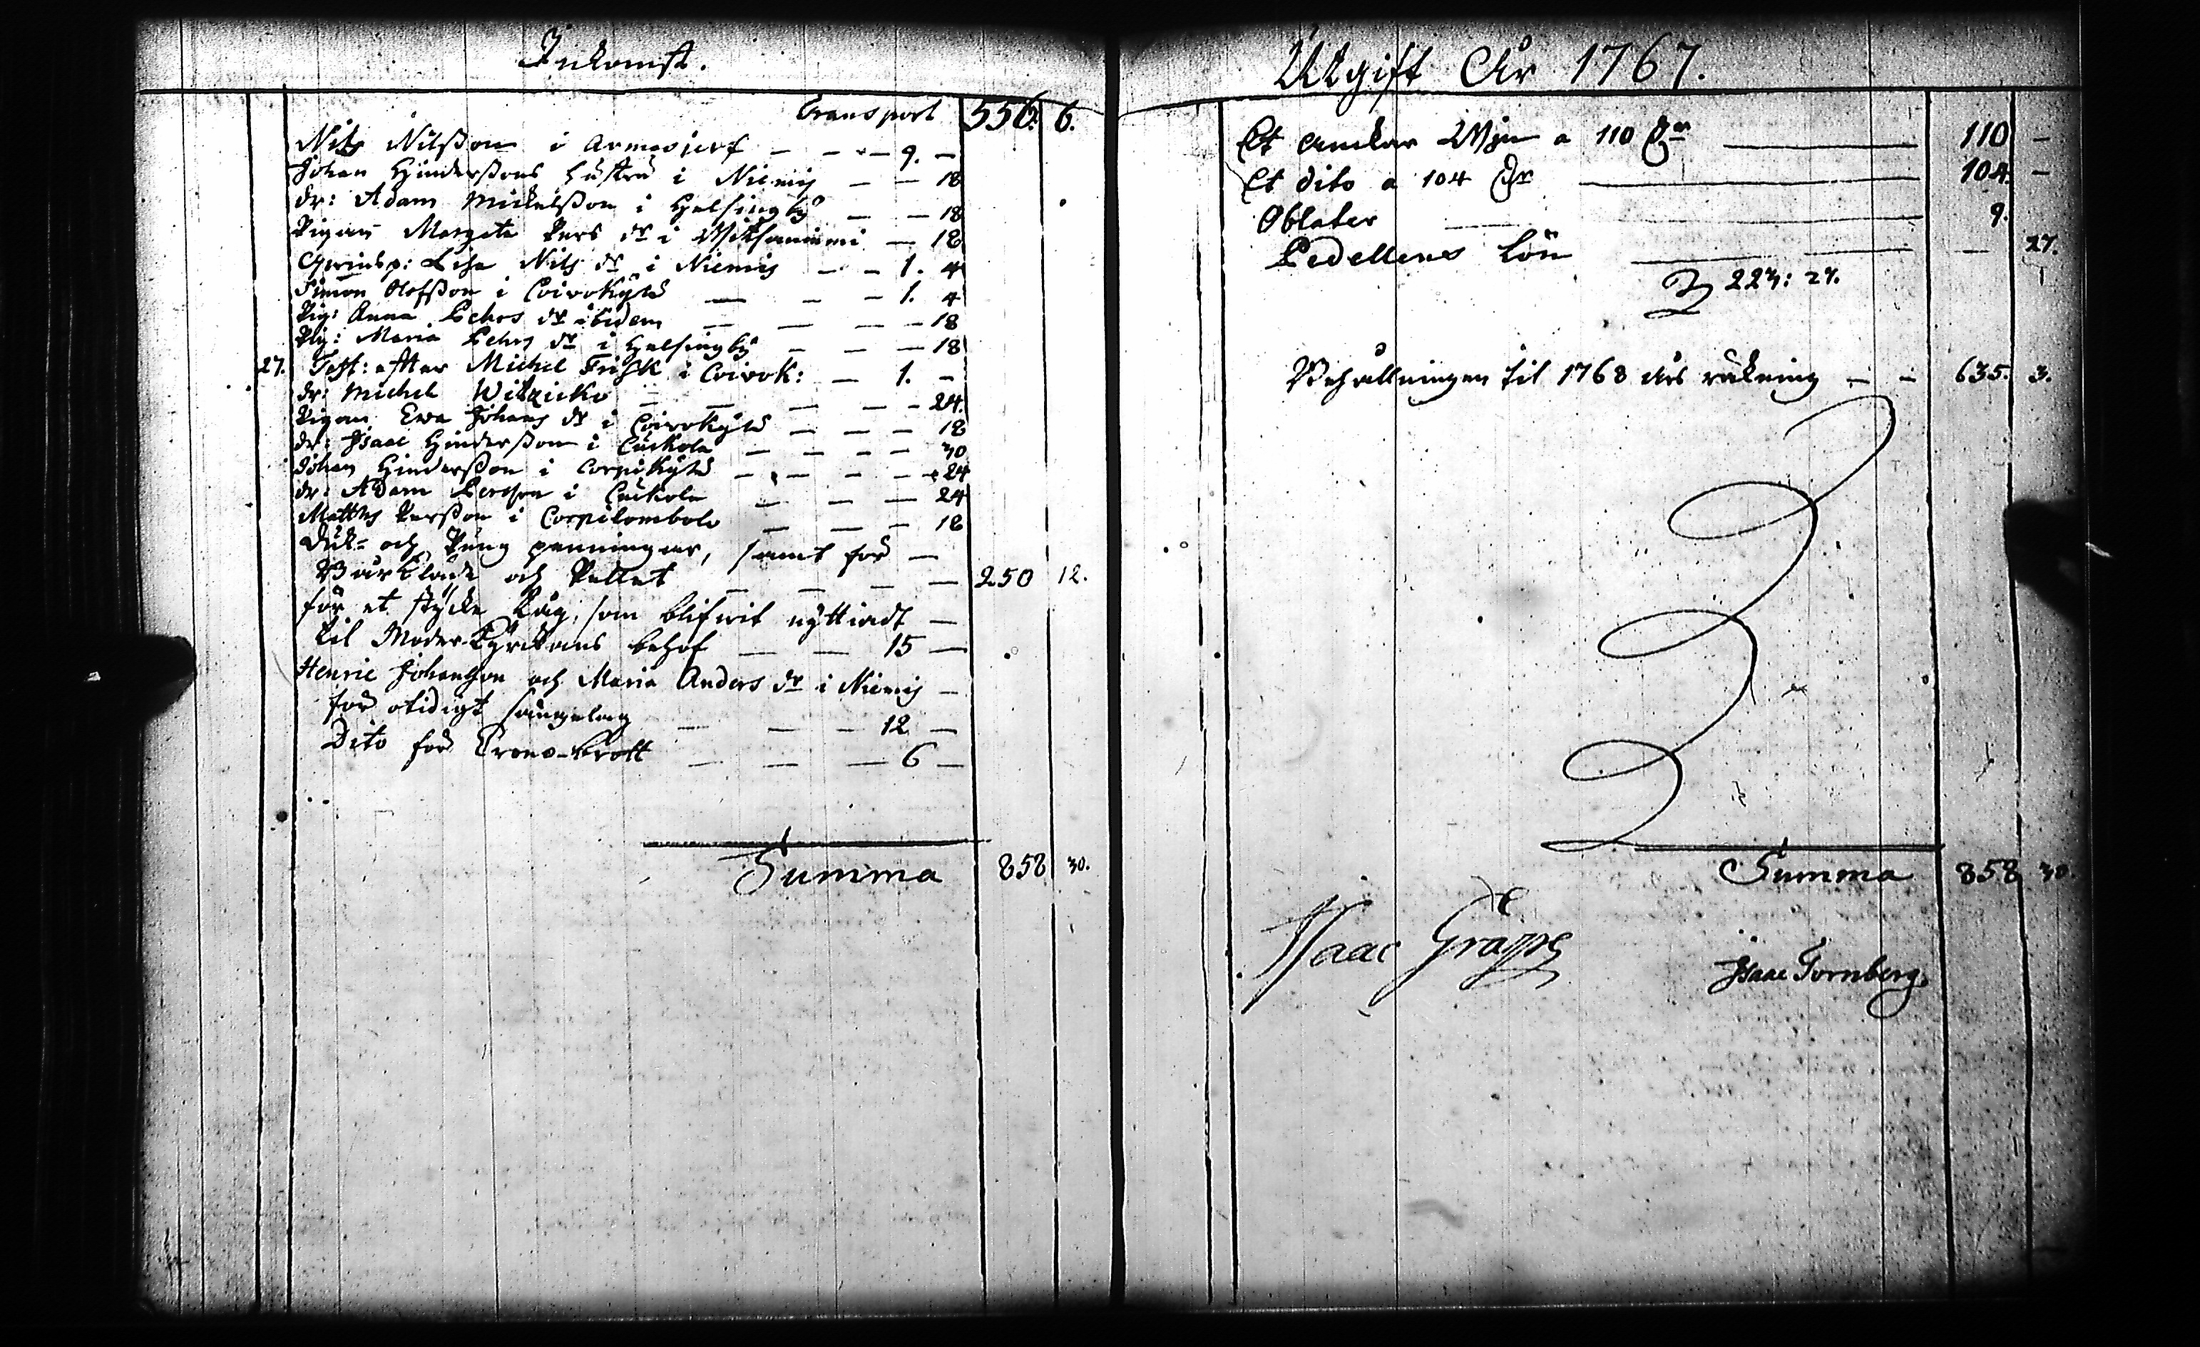 Inkomst.
Transport 556. 6.
Nils Nilsson i Armasjerf — — — 9. —
Johan Hindersons hustru i Niemis — — 18
dr: Adam Mickelsson i Helsingby — — 18
Pigan Margeta Pers dr i Witsaniemi — 18
Lisa Nils dr i Niemis — — 1. 4
Simon Olofsson i Coivokylä — — — 1. 4
Pig: Anna Pehrs dr ibidem — — — 18
Pig: Maria Pehrs dr i Helsingby — — — 18
27. Test: efter Michel Frisk i Coivok: — 1. —
dr: Michel — — — — 24.
Pigan Ewa Johans dr i Coivokylä — — — 18
dr: Isaac Hindersson i Cuckola — — — — 30
Johan Hindersson i Corpikylä — — — — 24
dr: Adam Persson i Cuckola — — — 24
Matths Persson i Corpilombolo — — — 18
Disk- och Pung penningar, samt för —
Bårkläde och Pellet — — — — 250 12.
för et stycke Tåg, som blifwit nyttiadt —
til Moder-Kyrckans behof — — 15 —
Henric Johansson och Maria Anders dr i Niemis —
för otidigt sängelag — — — 12 —
Dito för Crono-brott — — — 6 —
Summa 858 30.
Utgift År 1767.
Et Anckar Wijn a 110 Dr — 110 —
Et dito a 104 Dr — 104. —
Oblater — 9.
Pedellens Lön — — 27.
223: 27.
Behållningen til 1768 års räkning — — 635. 3.
Summa 858 30.
Isaac Grape
Isaac Tornberg.